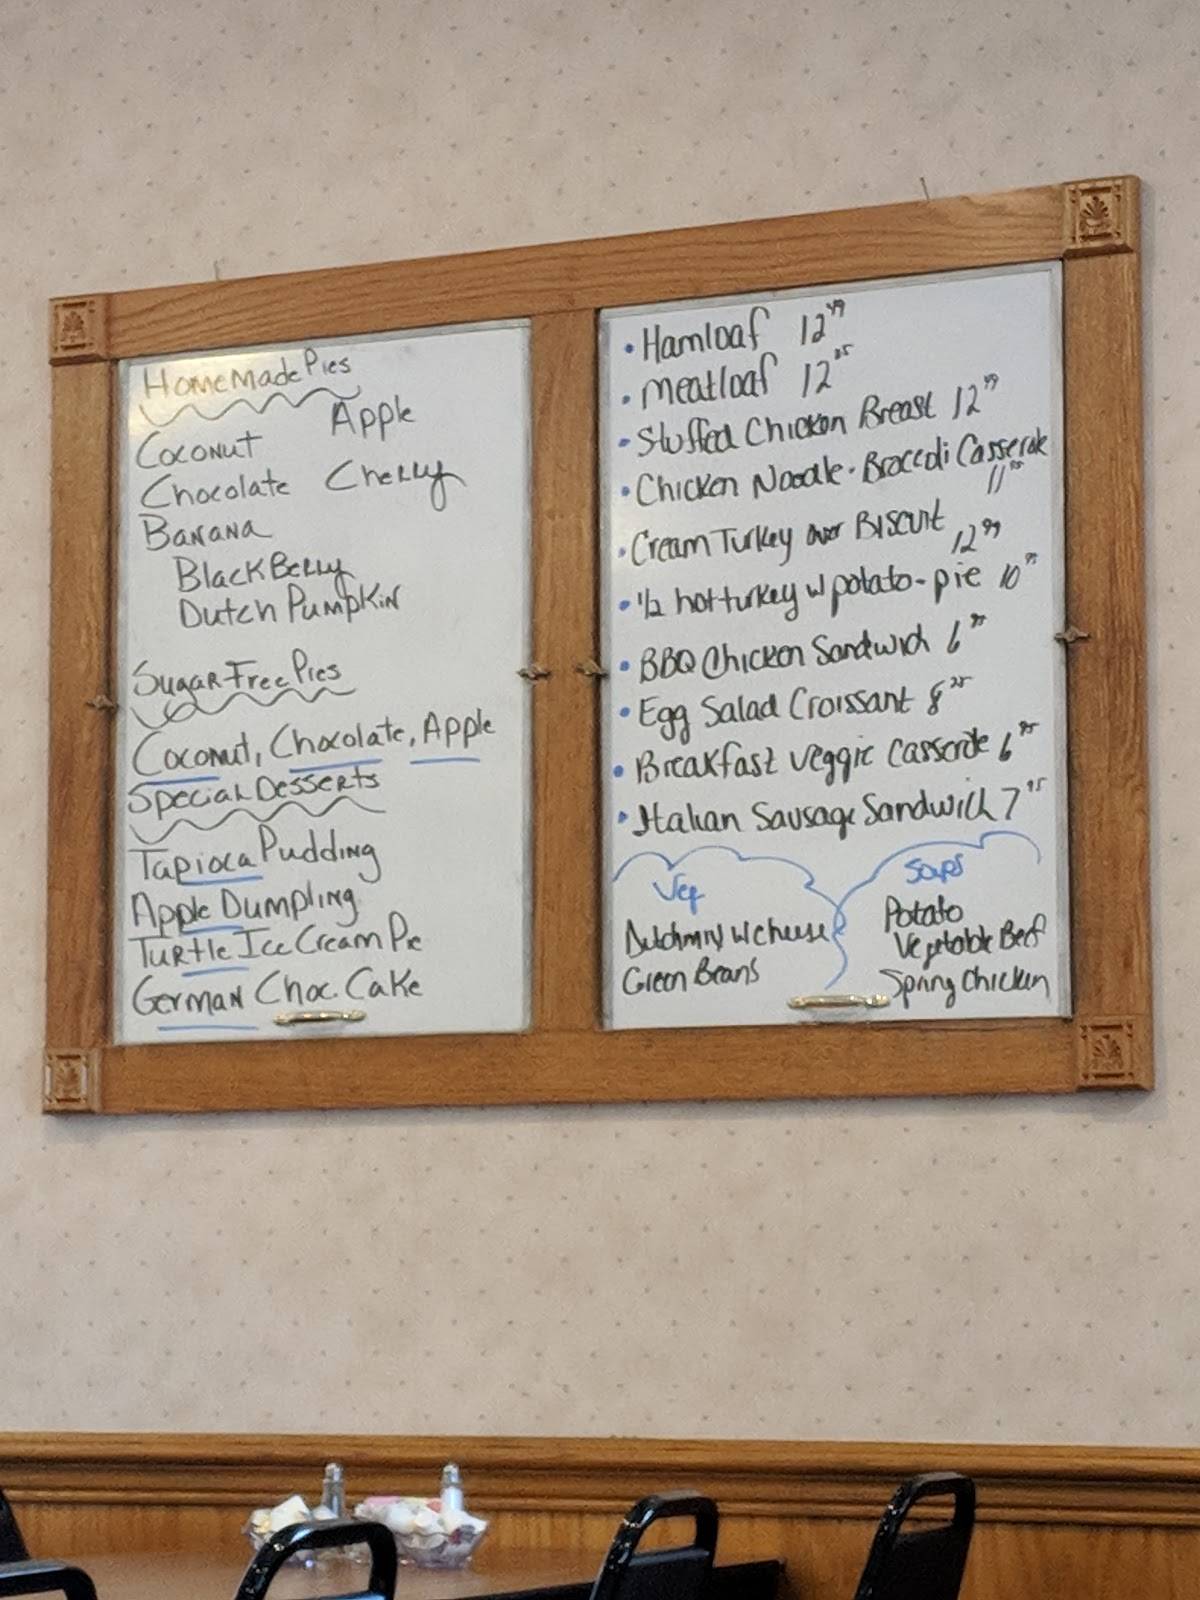 HomeMade Pies
Apple
Coconut
Chocolate Cherry
Banana
BlackBerry
Dutch Pumpkin
Sugar Free Pies
Coconut, Chocolate, Apple
Special Desserts
Tapioca Pudding
Apple Dumpling
Turtle Ice Cream Pie
German Choc. Cake
• Hamloaf 12 49
• meatloaf 12 25
• Stuffed Chicken Breast 12 99
• Chicken Noodle - Broccoli Casserole
11 95
• Cream Turkey over Biscuit
12 99
• 1/2 hot turkey w potato - pie 10 95
• BBQ Chicken Sandwich 6 95
• Egg Salad Croissant 8 25
• Breakfast Veggie Casserole 6 95
• Italian Sausage Sandwich 7 95
Veg
Dutchmix w cheese
Green Beans
Soups
Potato
Vegetable Beef
Spring Chicken